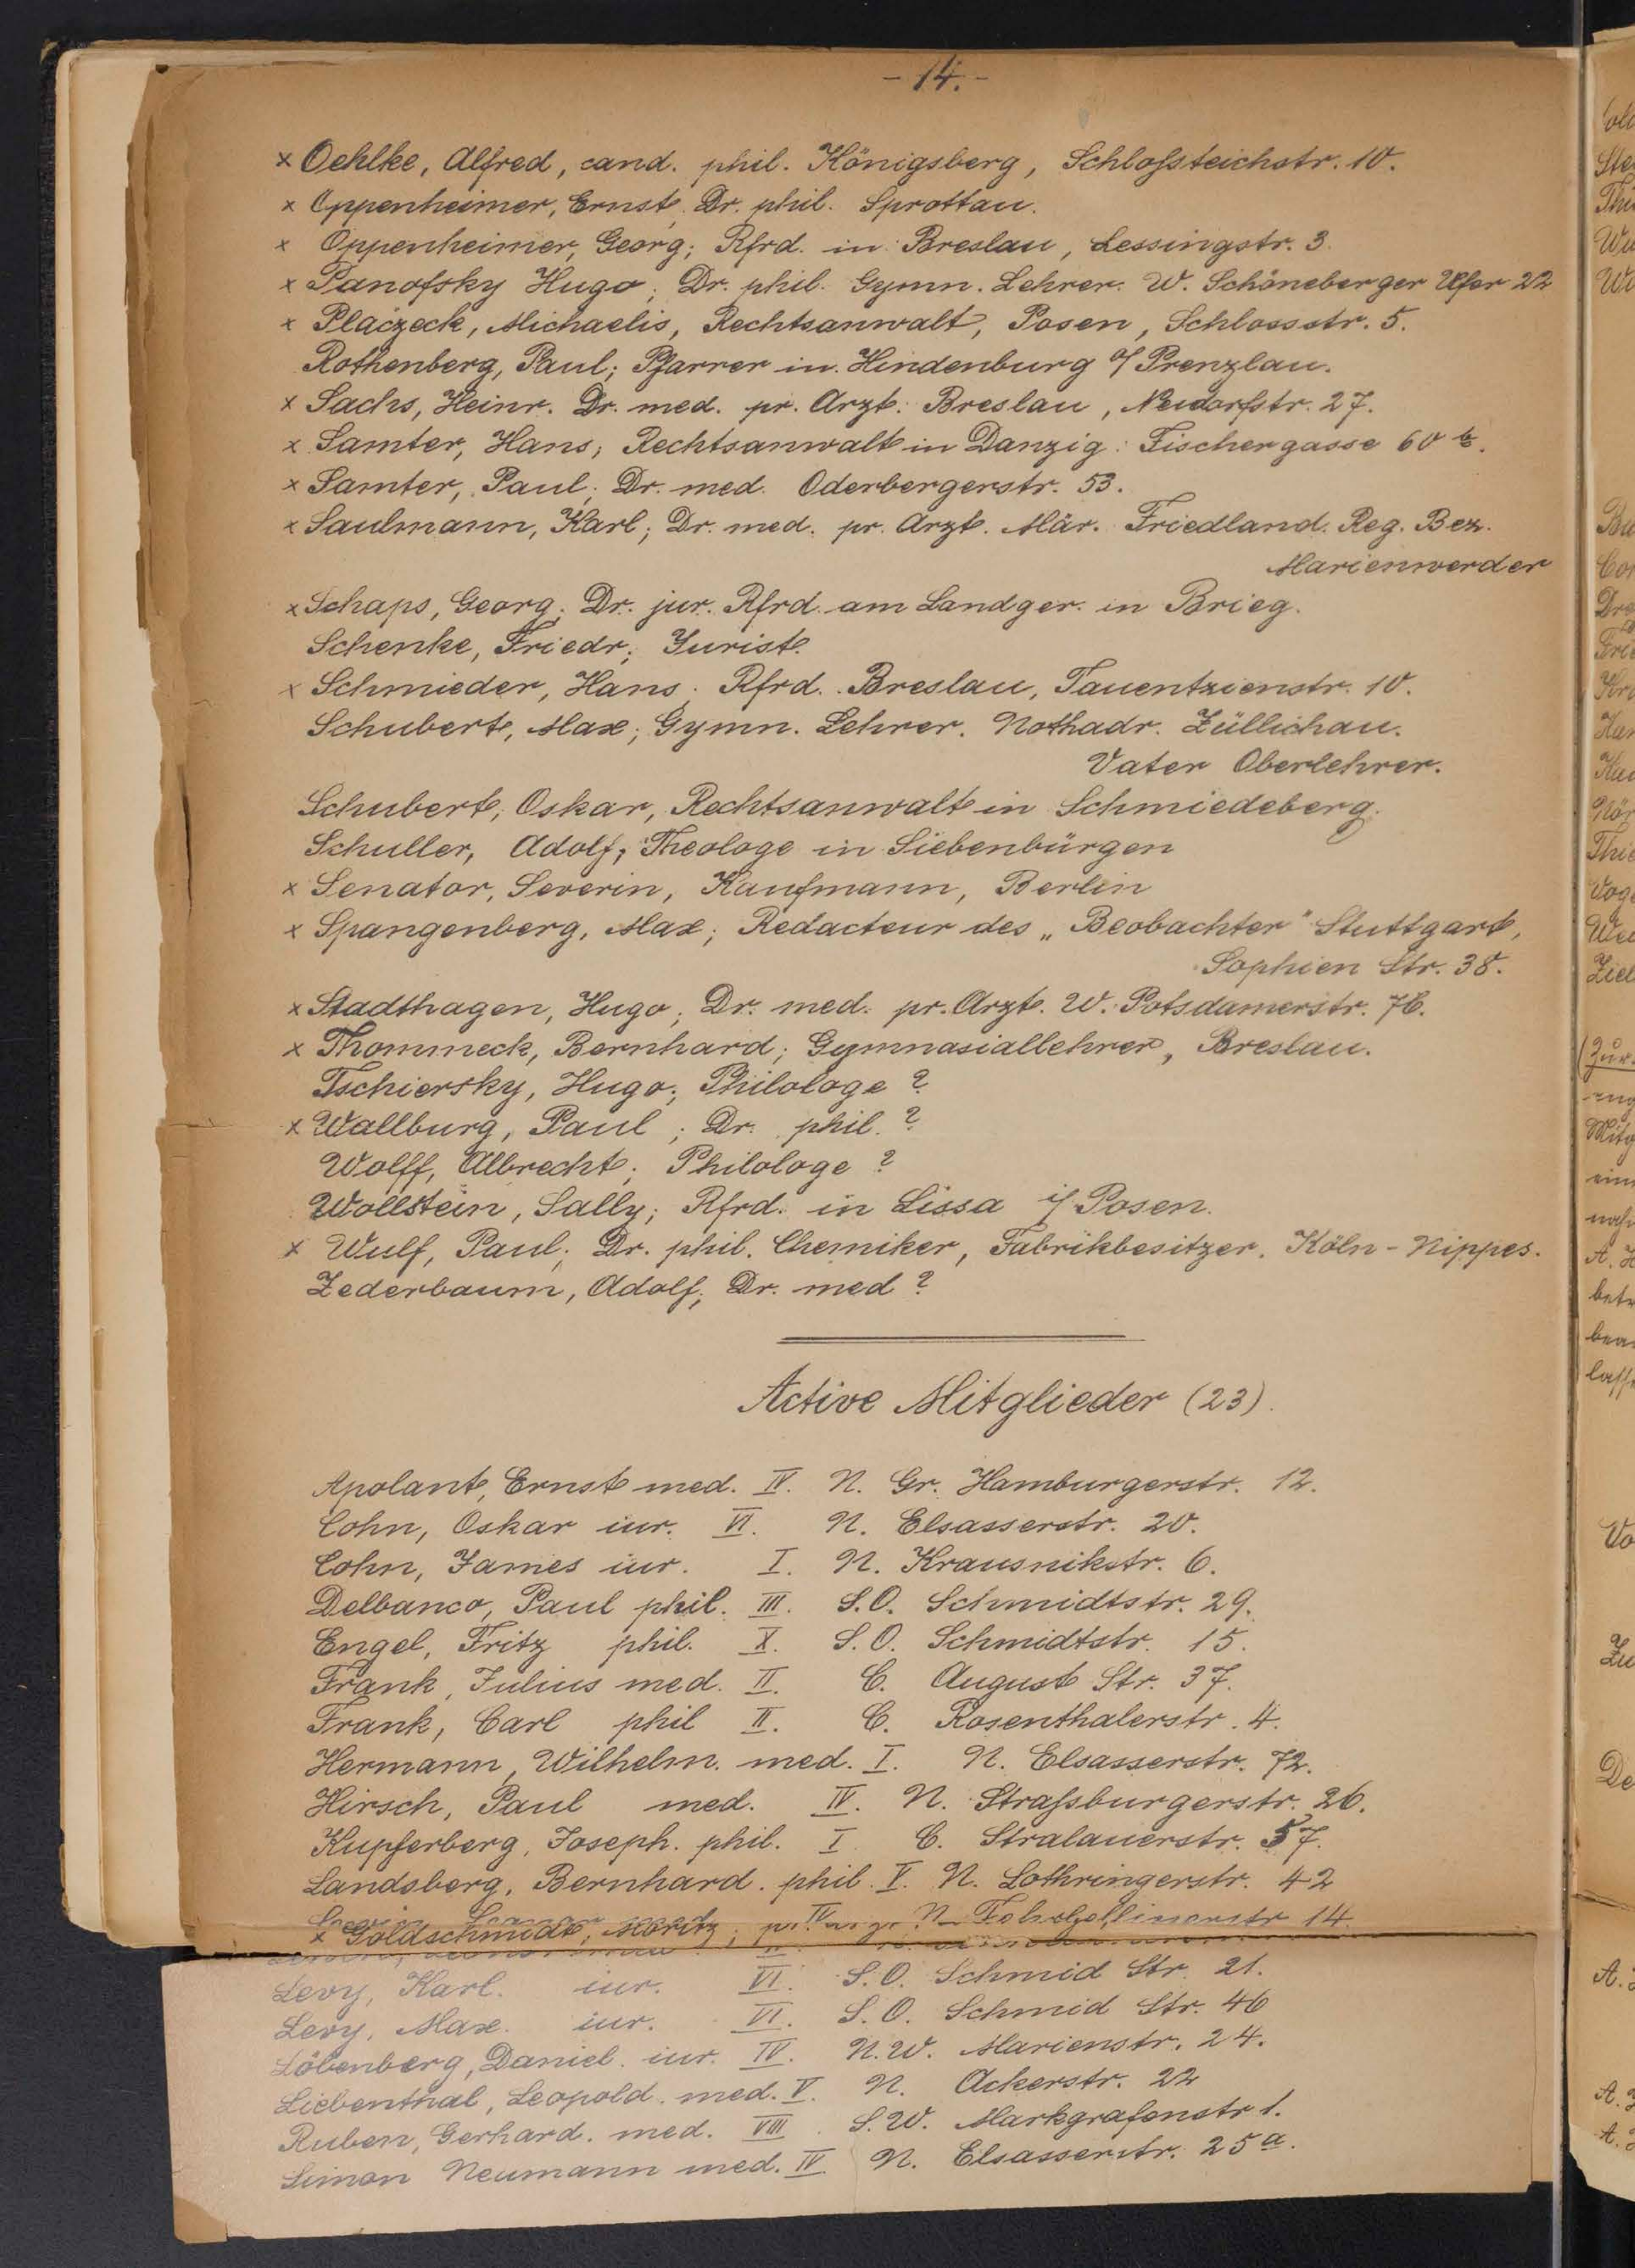 - 14. -
× Oehlke, Alfred, cand. phil. Königsberg, Schloßteichstr. 10.
× Oppenheimer, Ernst, Dr. phil. Sprottau.
× Oppenheimer, Georg; Rfrd. in Breslau, Lessingstr. 3.
× Panofsky Hugo; Dr. phil. Gymn. Lehrer. W. Schöneberger Ufer 22
× Placzeck, Michaelis, Rechtsanwalt, Posen, Schlossstr. 5.
Rothenberg, Paul; Pfarrer in Hindenburg b/ Prenzlau.
× Sachs, Heinr. Dr. med. pr. Arzt. Breslau, Neudorfstr. 27.
× Samter, Hans; Rechtsanwalt in Danzig: Fischergasse 60 b.
× Samter, Paul; Dr. med. Oderbergerstr. 53.
× Saulmann, Karl; Dr. med. pr. Arzt. Mär. Friedland. Reg. Bez.
Marienwerder
× Schaps, Georg; Dr. jur. Rfrd. am Landger. in Brieg.
Schenke, Friedr; Jurist.
× Schmieder, Hans. Rfrd. Breslau, Tauentzienstr. 10.
Schubert, Max; Gymn. Lehrer. Nothadr. Züllichau.
Vater Oberlehrer.
Schubert, Oskar, Rechtsanwalt in Schmiedeberg.
Schuller, Adolf; Theologe in Siebenbürgen
× Senator, Severin, Kaufmann, Berlin
× Spangenberg, Max; Redacteur des „Beobachter" Stuttgart,
Sophien Str. 38.
× Stadthagen, Hugo; Dr. med. pr. Arzt. W. Potsdamerstr. 76.
× Thommeck, Bernhard; Gymnasiallehrer, Breslau.
Tschiersky, Hugo; Philologe ?
× Wallburg, Paul; Dr. phil. ?
Wolff, Albrecht; Philologe ?
Wollstein, Sally; Rfrd. in Lissa i/ Posen.
× Wulf, Paul; Dr. phil. Chemiker, Fabrikbesitzer. Köln - Nippes.
Zederbaum, Adolf; Dr. med ?
Active Mitglieder (23).
Apolant, Ernst med. IV. N. Gr. Hamburgerstr. 12.
Cohn, Oskar iur. VI. N. Elsasserstr. 20.
Cohn, James iur. I. N. Krausnikstr. 6.
Delbanco, Paul phil. III. S.O. Schmidtstr. 29.
Engel, Fritz phil. X. S.O. Schmidtstr. 15.
Frank, Julius med. II. C. August Str. 37.
Frank, Carl phil II. C. Rosenthalerstr. 4.
Hermann, Wilhelm. med. I. N. Elsasserstr. 72.
Hirsch, Paul med. IV. N. Straßburgerstr. 26.
Kupferberg, Joseph. phil. I C. Stralauerstr. 57.
Landsberg, Bernhard. phil. V. N. Lothringerstr. 42
× Goldschmidt, Moritz; 14
Levy, Karl. iur. VI. S.O. Schmid Str. 21.
Levy, Max. iur. VI. S.O. Schmid Str. 46
Löbenberg, Daniel. iur. IV. N.W. Marienstr. 24.
Liebenthal, Leopold. med. V. N. Ackerstr. 22
Ruben, Gerhard. med. VIII. S.W. Markgrafenstr 1.
Simon Neumann med. IV N. Elsasserstr. 25a.